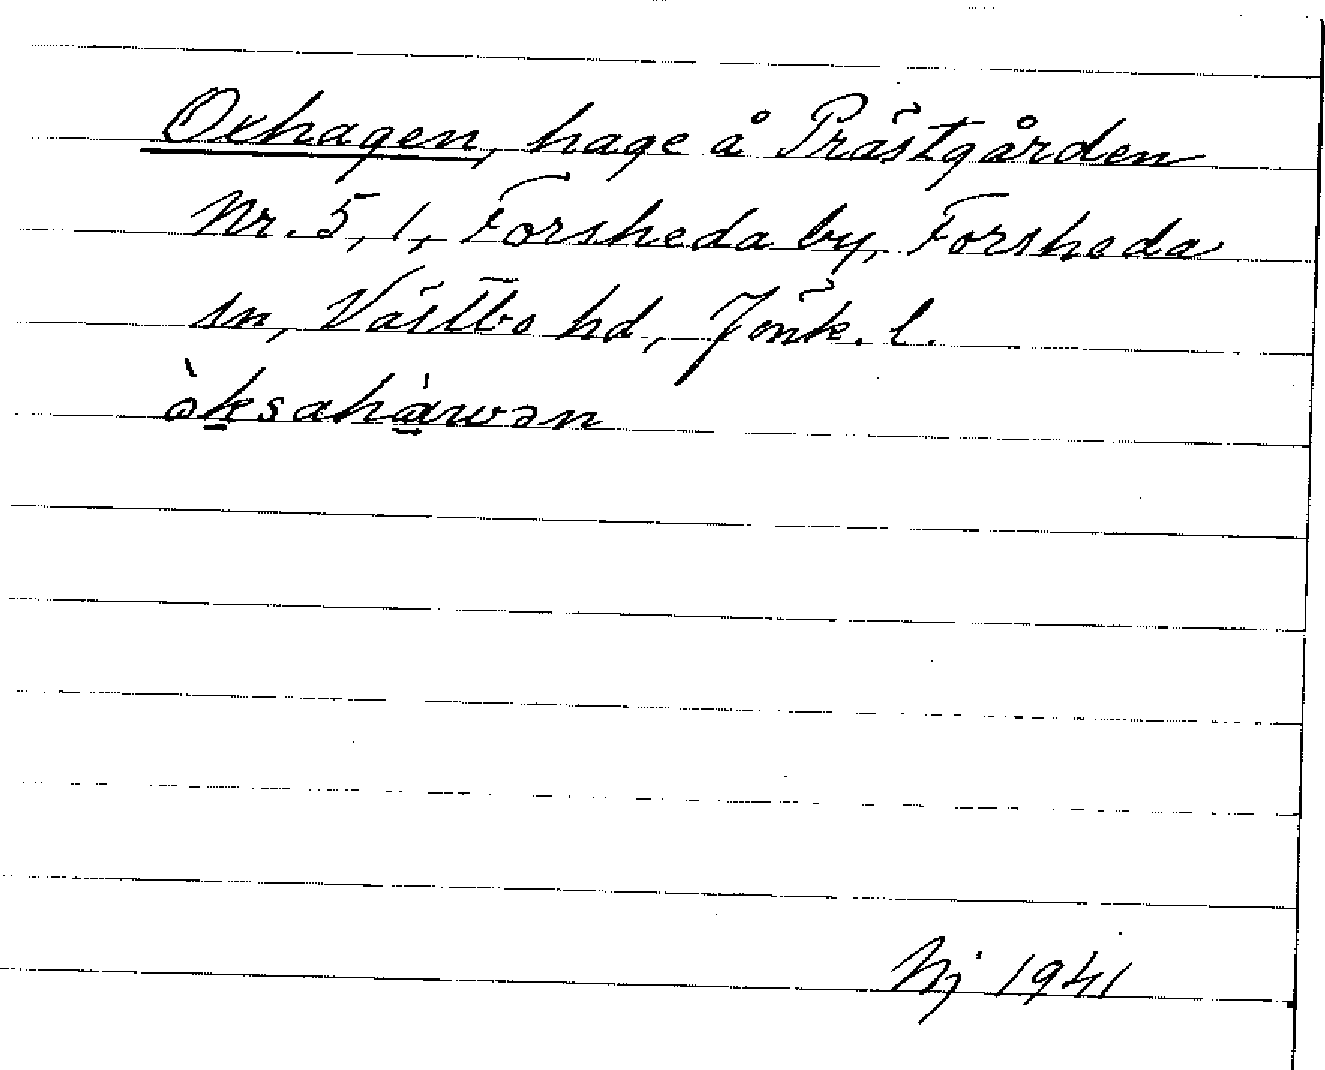 Oxhagen, hage å Prästgården
Nr. 5,1, Forsheda by, Forsheda
sn, Västbo hd, Jönk. l.
òksahàwən
Nj 1941